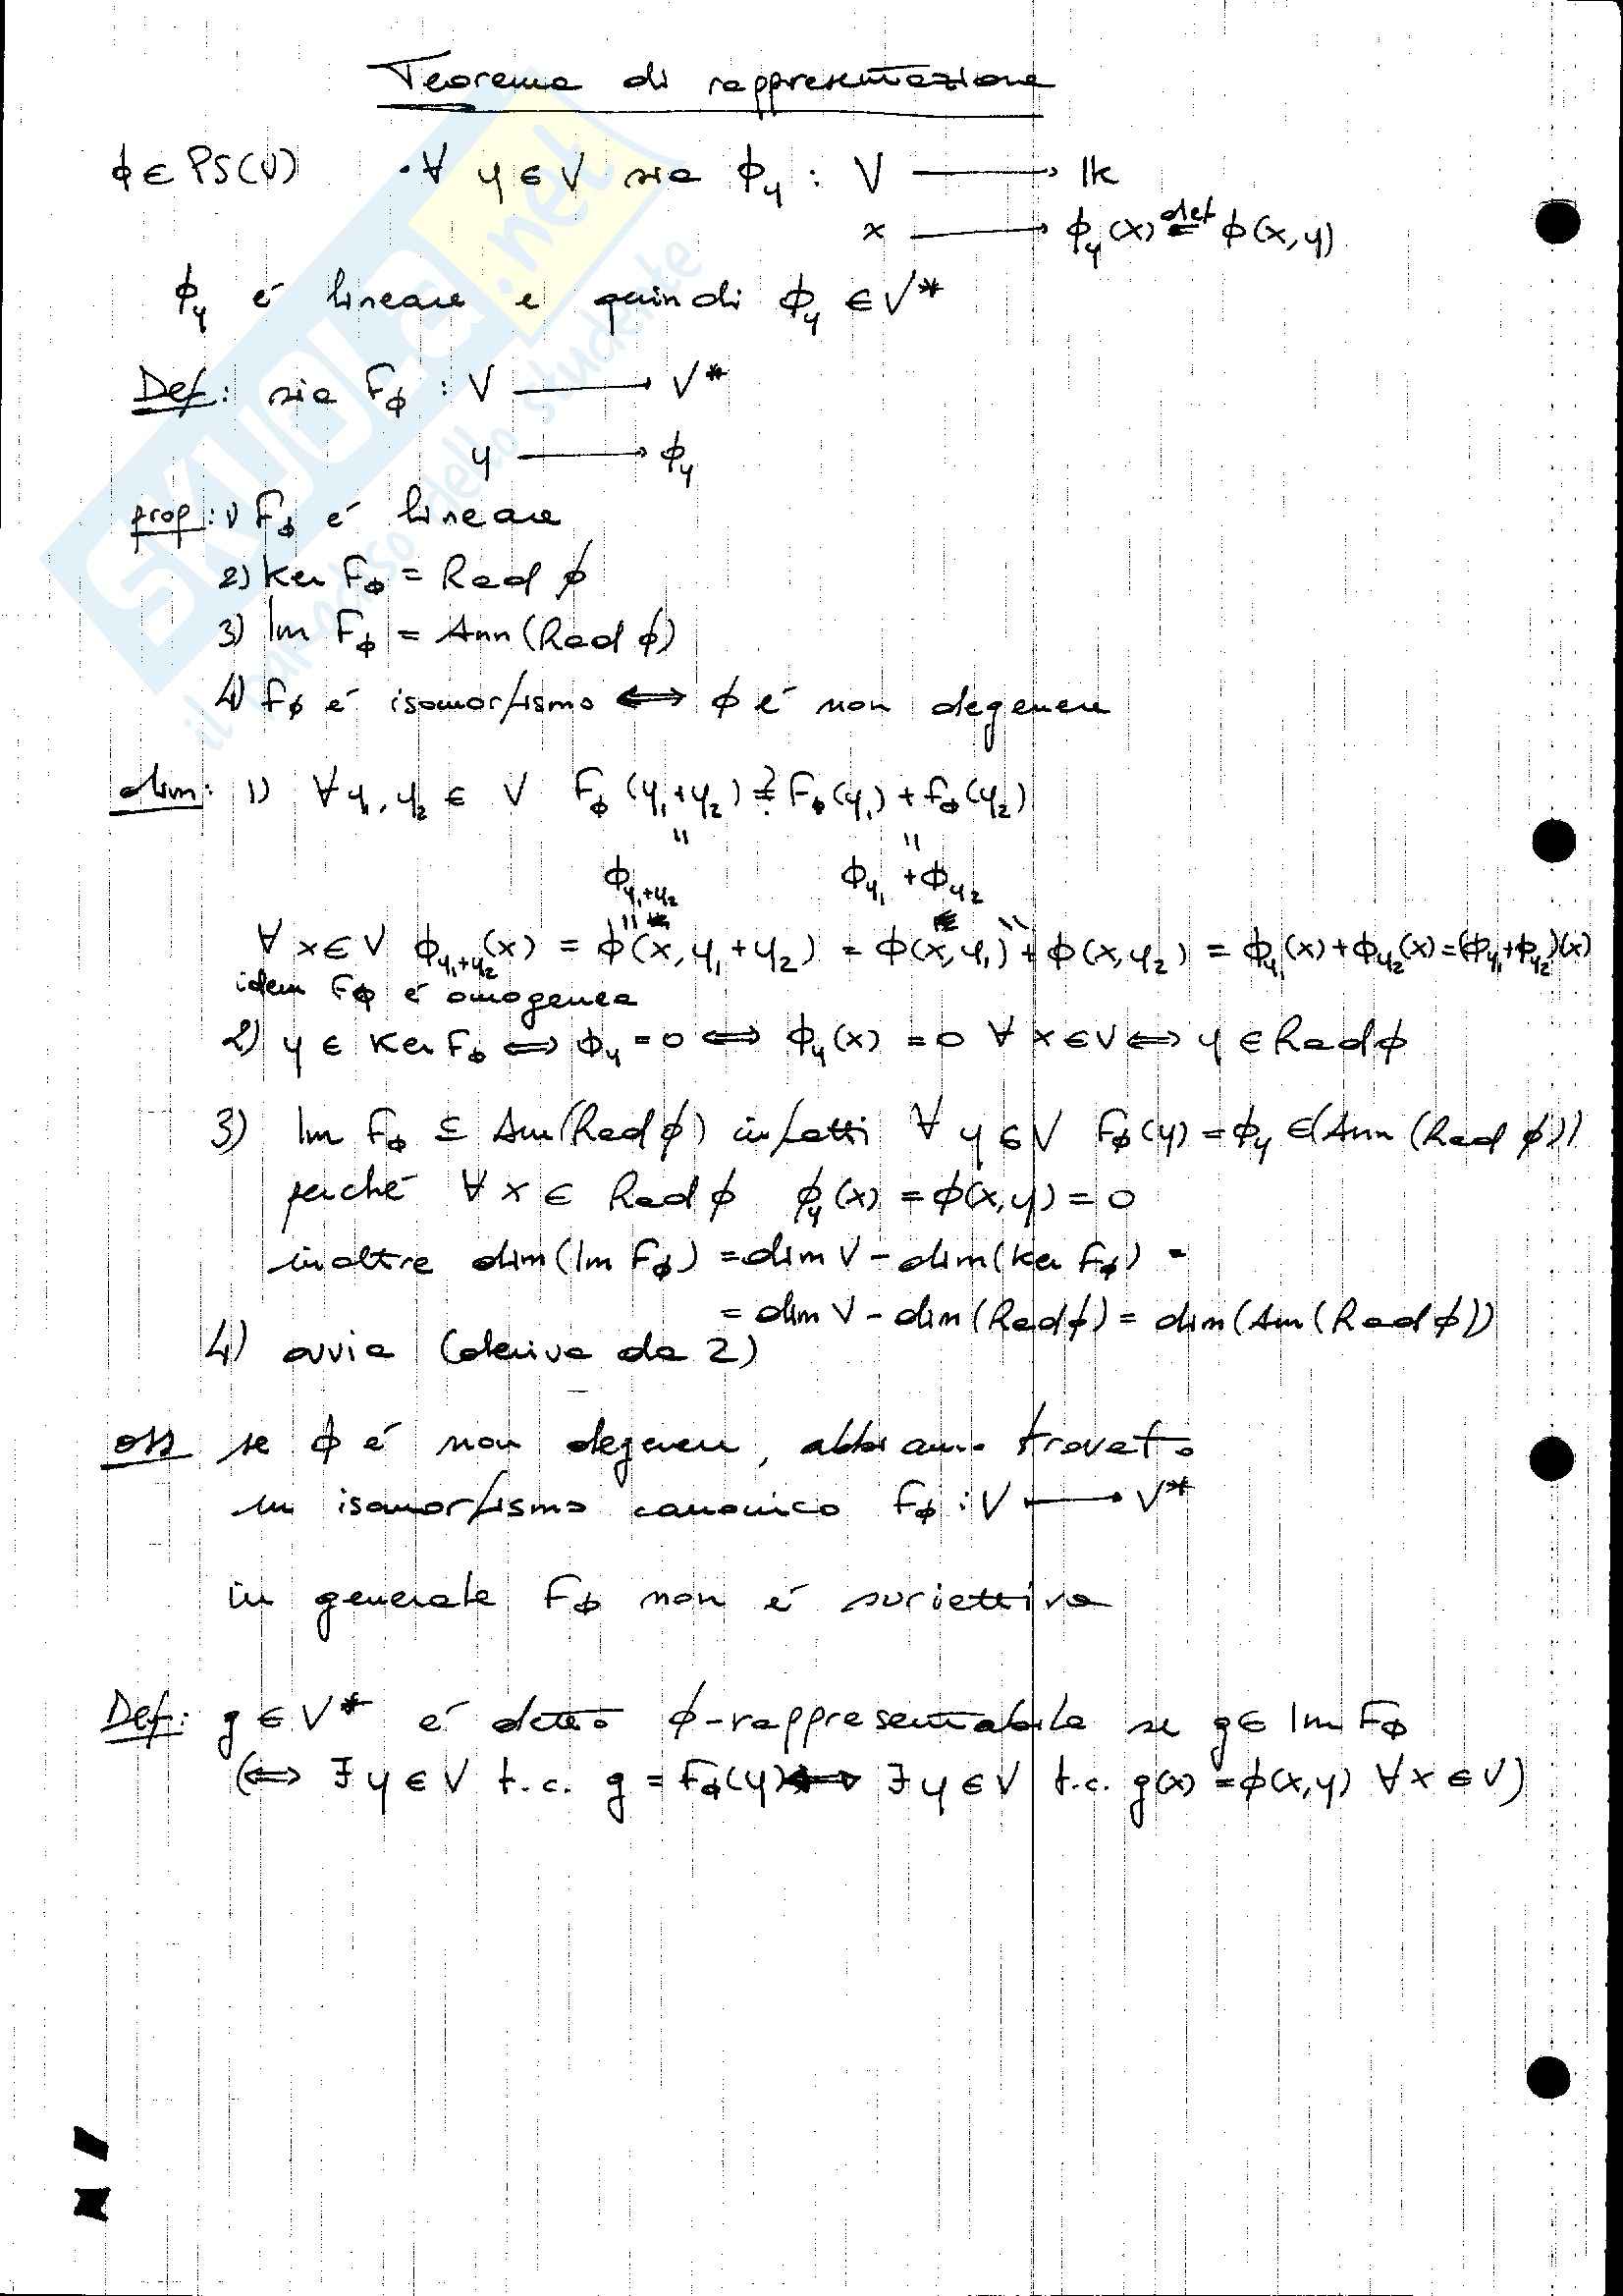 Teorema di rappresentazione
ϕ ∈ PS(V) · ∀ y ∈ V sia ϕ_y : V ⟶ 𝕂
x ⟶ ϕ_y(x) =^def ϕ(x,y)
ϕ_y é lineare e quindi ϕ_y ∈ V*
Def: sia F_ϕ : V ⟶ V*
y ⟶ ϕ_y
prop: 1) F_ϕ é lineare
2) Ker F_ϕ = Rad ϕ
3) Im F_ϕ = Ann(Rad ϕ)
4) F_ϕ é isomorfismo ⟺ ϕ é non degenere
dim: 1) ∀ y₁, y₂ ∈ V F_ϕ(y₁+y₂) =? F_ϕ(y₁) + F_ϕ(y₂)
" "
ϕ_{y₁+y₂} ϕ_{y₁} + ϕ_{y₂}
∀ x ∈ V ϕ_{y₁+y₂}(x) = ϕ(x, y₁+y₂) = ϕ(x,y₁) + ϕ(x,y₂) = ϕ_{y₁}(x) + ϕ_{y₂}(x) = (ϕ_{y₁}+ϕ_{y₂})(x)
idem F_ϕ é omogenea
2) y ∈ Ker F_ϕ ⟺ ϕ_y = 0 ⟺ ϕ_y(x) = 0 ∀ x ∈ V ⟺ y ∈ Rad ϕ
3) Im F_ϕ ⊆ Ann(Rad ϕ) infatti ∀ y ∈ V F_ϕ(y) = ϕ_y ∈ (Ann(Rad ϕ))
perché ∀ x ∈ Rad ϕ ϕ_y(x) = ϕ(x,y) = 0
inoltre dim(Im F_ϕ) = dim V - dim(Ker F_ϕ) =
= dim V - dim(Rad ϕ) = dim(Ann(Rad ϕ))
4) ovvia (deriva da 2)
oss se ϕ é non degenere, abbiamo trovato
un isomorfismo canonico F_ϕ : V ⟶ V*
in generale F_ϕ non é suriettiva
Def: g ∈ V* é detto ϕ-rappresentabile se g ∈ Im F_ϕ
(⟺ ∃ y ∈ V t.c. g = F_ϕ(y) ⟺ ∃ y ∈ V t.c. g(x) = ϕ(x,y) ∀ x ∈ V)
SKUOLA.net